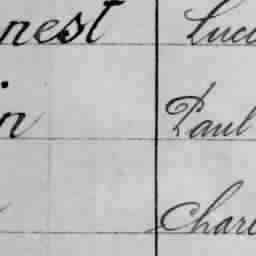 nest Luci
in Paul
Charl